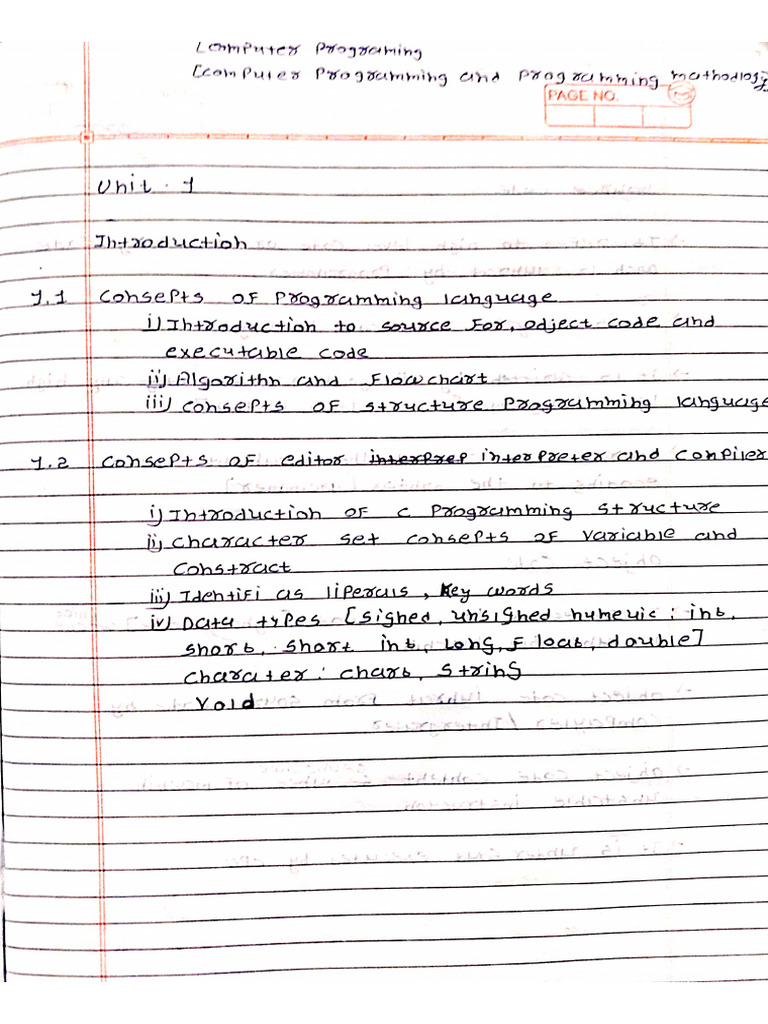 [computer Programing
[computer Programming and programming mathodlogy
PAGE NO.
Unit . 1
Introduction
1.1 Consepts of Programming language
i) Introduction to source For, odject code and
executable code
ii) Algorithn and Flowchart
iii) Consepts of structure Programming language
1.2 Consepts of editor interprep interpreter and Conpiler
i) Introduction of C Programming Structure
ii) Character set consepts of Variable and
Constract
iii) Identifi as liperals, Key words
iv) Data types [signed, unsigned numeuic : int,
short, short int, Long, Float, double]
charater : chart, String
Void